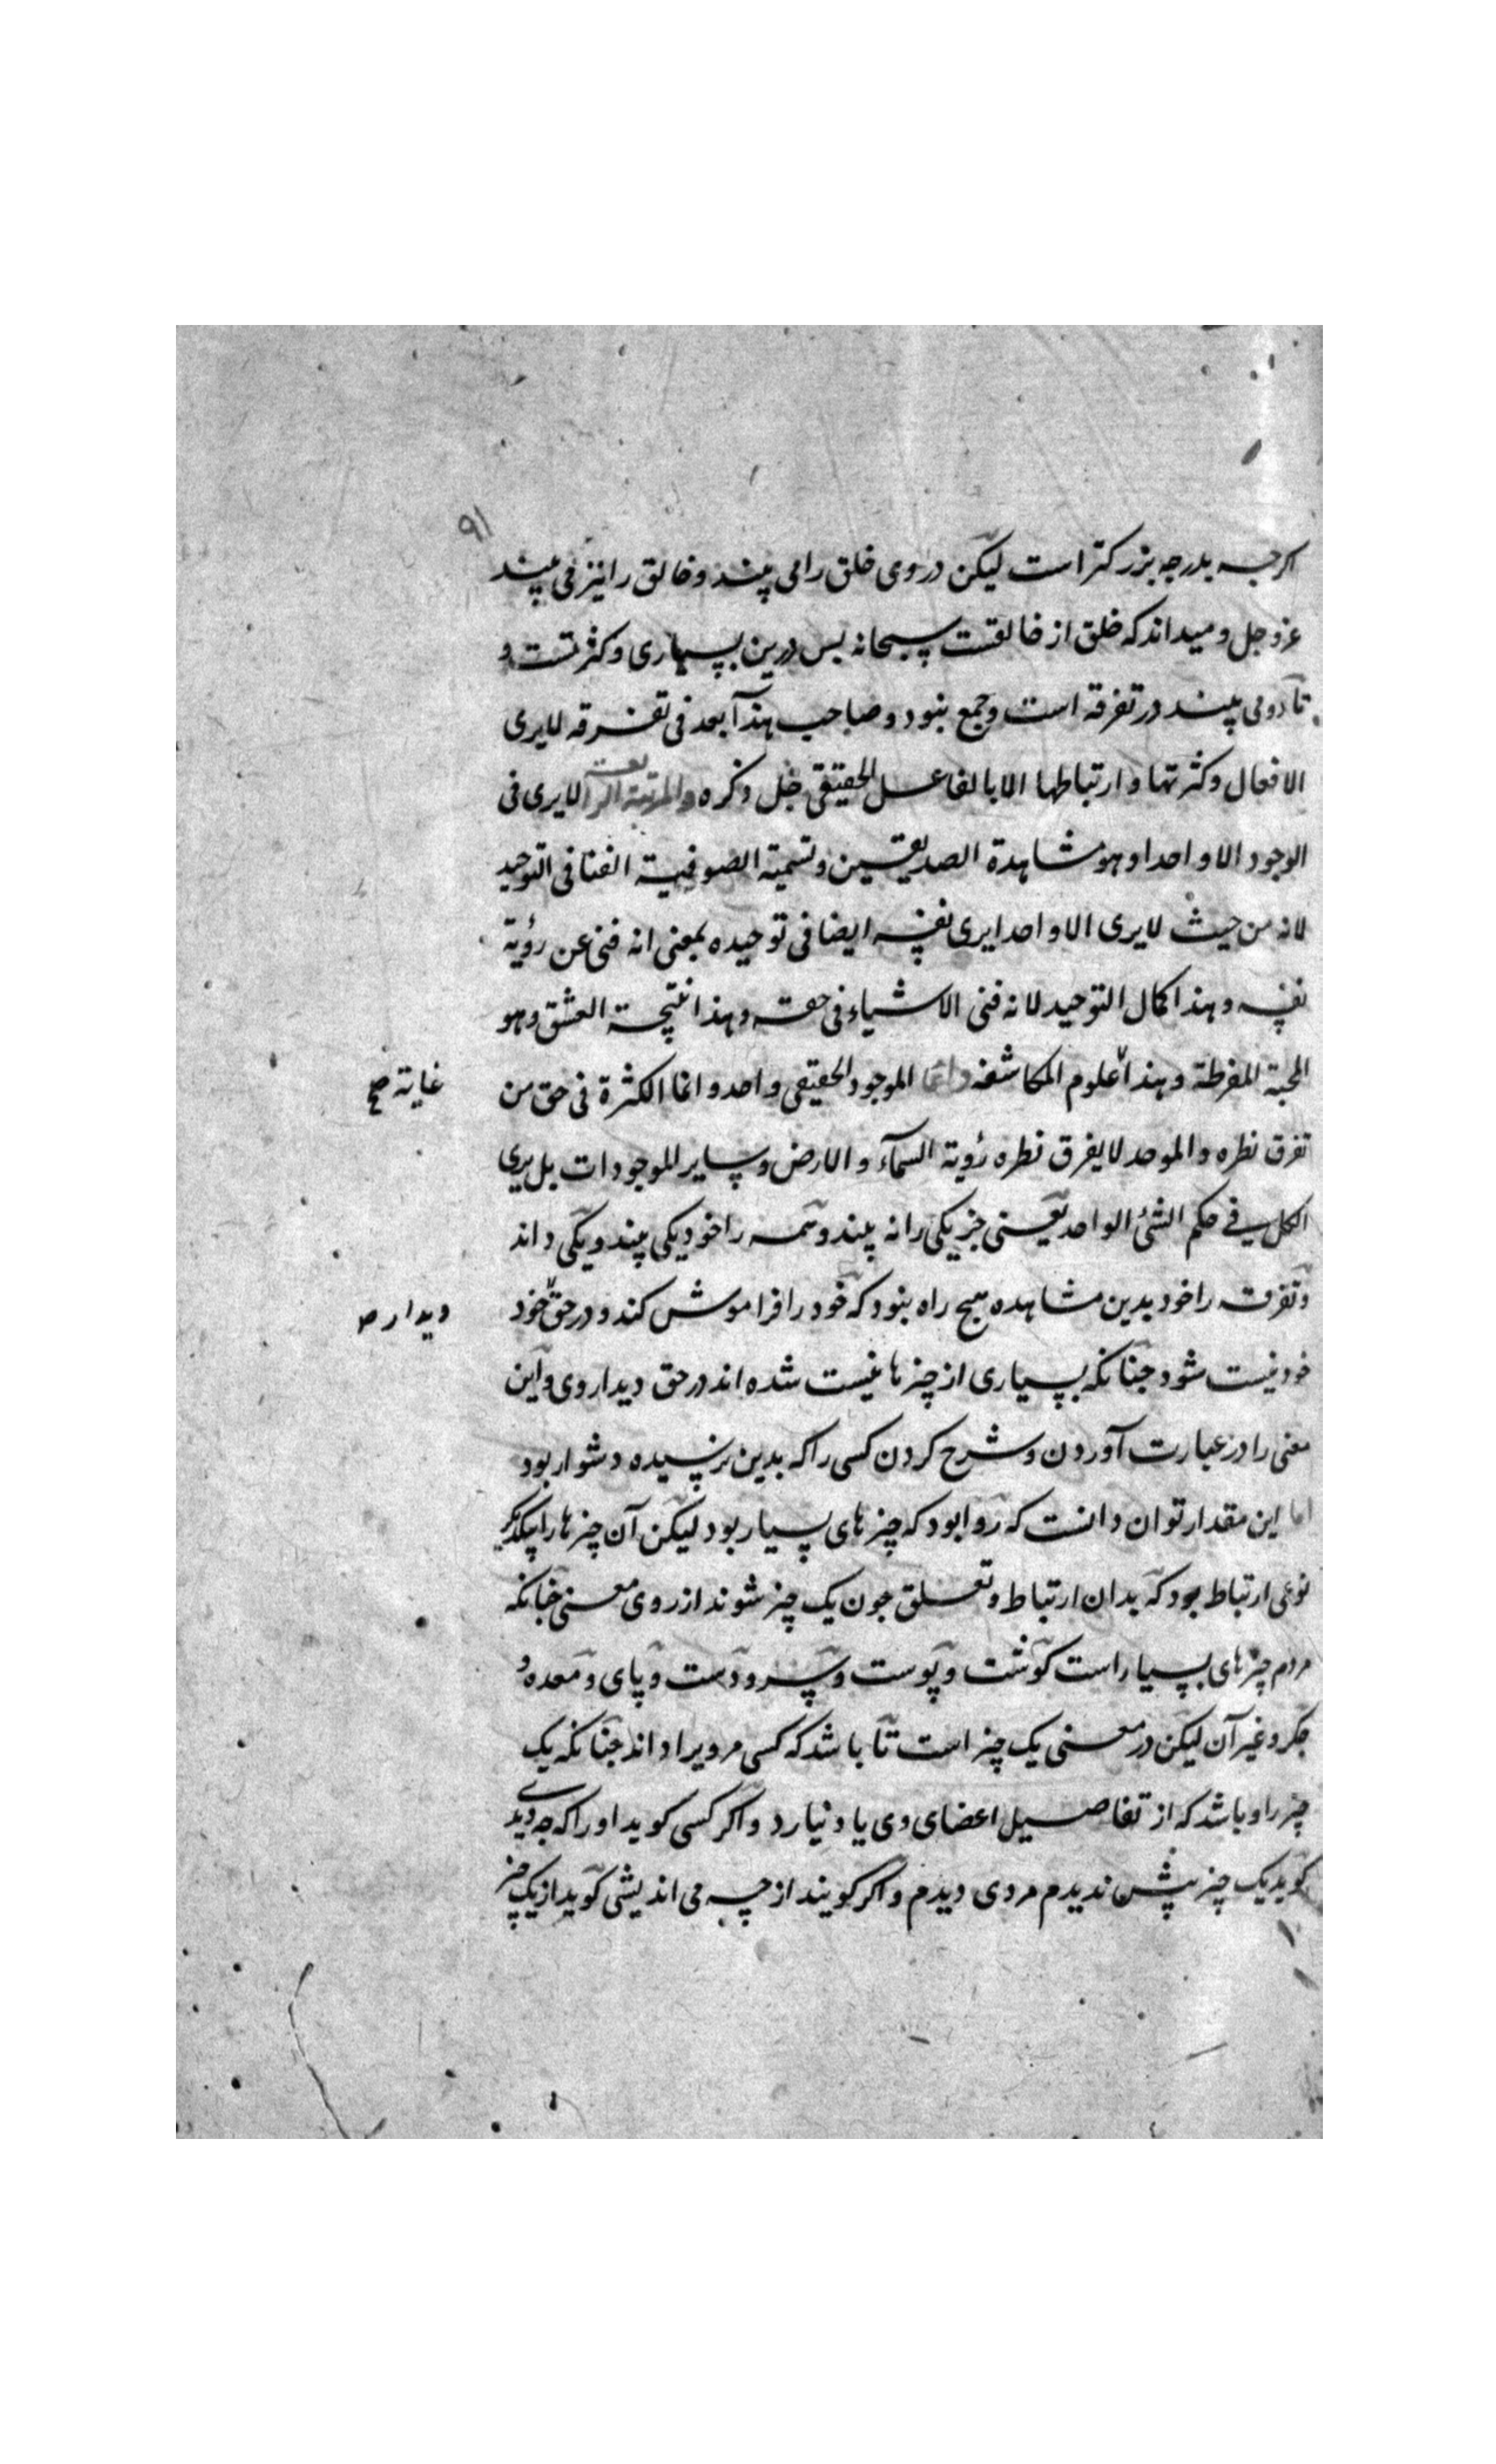 ٩١
اکرجه بدرجه بزرکتر است لیکن در وی خلق را می بیند و خالق را نیز می بیند
عز و جل و میداند که خلق از خالقست سبحانه بس درین بسیاری و کثرتست و
تا دو می بیند در تفرقه است و جمع نبود و صاحب هذا بعد فی تفرقه لا یری
الافعال و کثرتها و ارتباطها الا بالفاعل الحقیقی جل ذکره والمرتبة الرابعة لا یری فی
الوجود الا واحدا و هو مشاهدة الصدیقین و تسمیه الصوفیة الفنا فی التوحید
لانه من حیث لا یری الا واحدا یری نفسه ایضا فی توحیده بمعنی انه فنی عن رؤیة
نفسه و هذا کمال التوحید لانه فنی الاشیاء فی حقه و هذا نتیجة العشق و هو
المحبة المفرطة و هذا علوم المکاشفه و انما الموجود الحقیقی واحد و انما الکثرة فی حق من
غایة صح
تفرق نظره و الموحد لا یفرق نظره رؤیة السمآء و الارض و سایر الموجودات بل یری
الکل فی حکم الشئ الواحد یعنی جز یکی را نه بیند و همه را خود یکی بیند و یکی داند
و تفرقه را خود بدین مشاهده هیچ راه نبود که خود را فراموش کند و در حق خود
دیدار ص
خود نیست شود جنانکه بسیاری از چیزها نیست شده اند در حق دیدار وی و این
معنی را در عبارت آوردن و شرح کردن کسی را که بدین نرسیده دشوار بود
اما این مقدار توان دانست که روا بود که چیزهای بسیار بود لیکن آن چیزها را بیکدیکر
نوعی ارتباط بود که بدان ارتباط و تعلق جون یک چیز شوند از روی معنی جنانکه
مردم چیزهای بسیار است کوشت و پوست و سر و دست و پای و معده و
جکر و غیر آن لیکن در معنی یک چیز است تا باشد که کسی مرویرا داند جنانکه یک
چیز را و باشد که از تفاصیل اعضای وی یاد نیارد و اکر کسی کوید او را که چه دیدی
کوید یک چیز بیش ندیدم مردی دیدم و اکر کویند از چه می اندیشی کوید از یک چیز